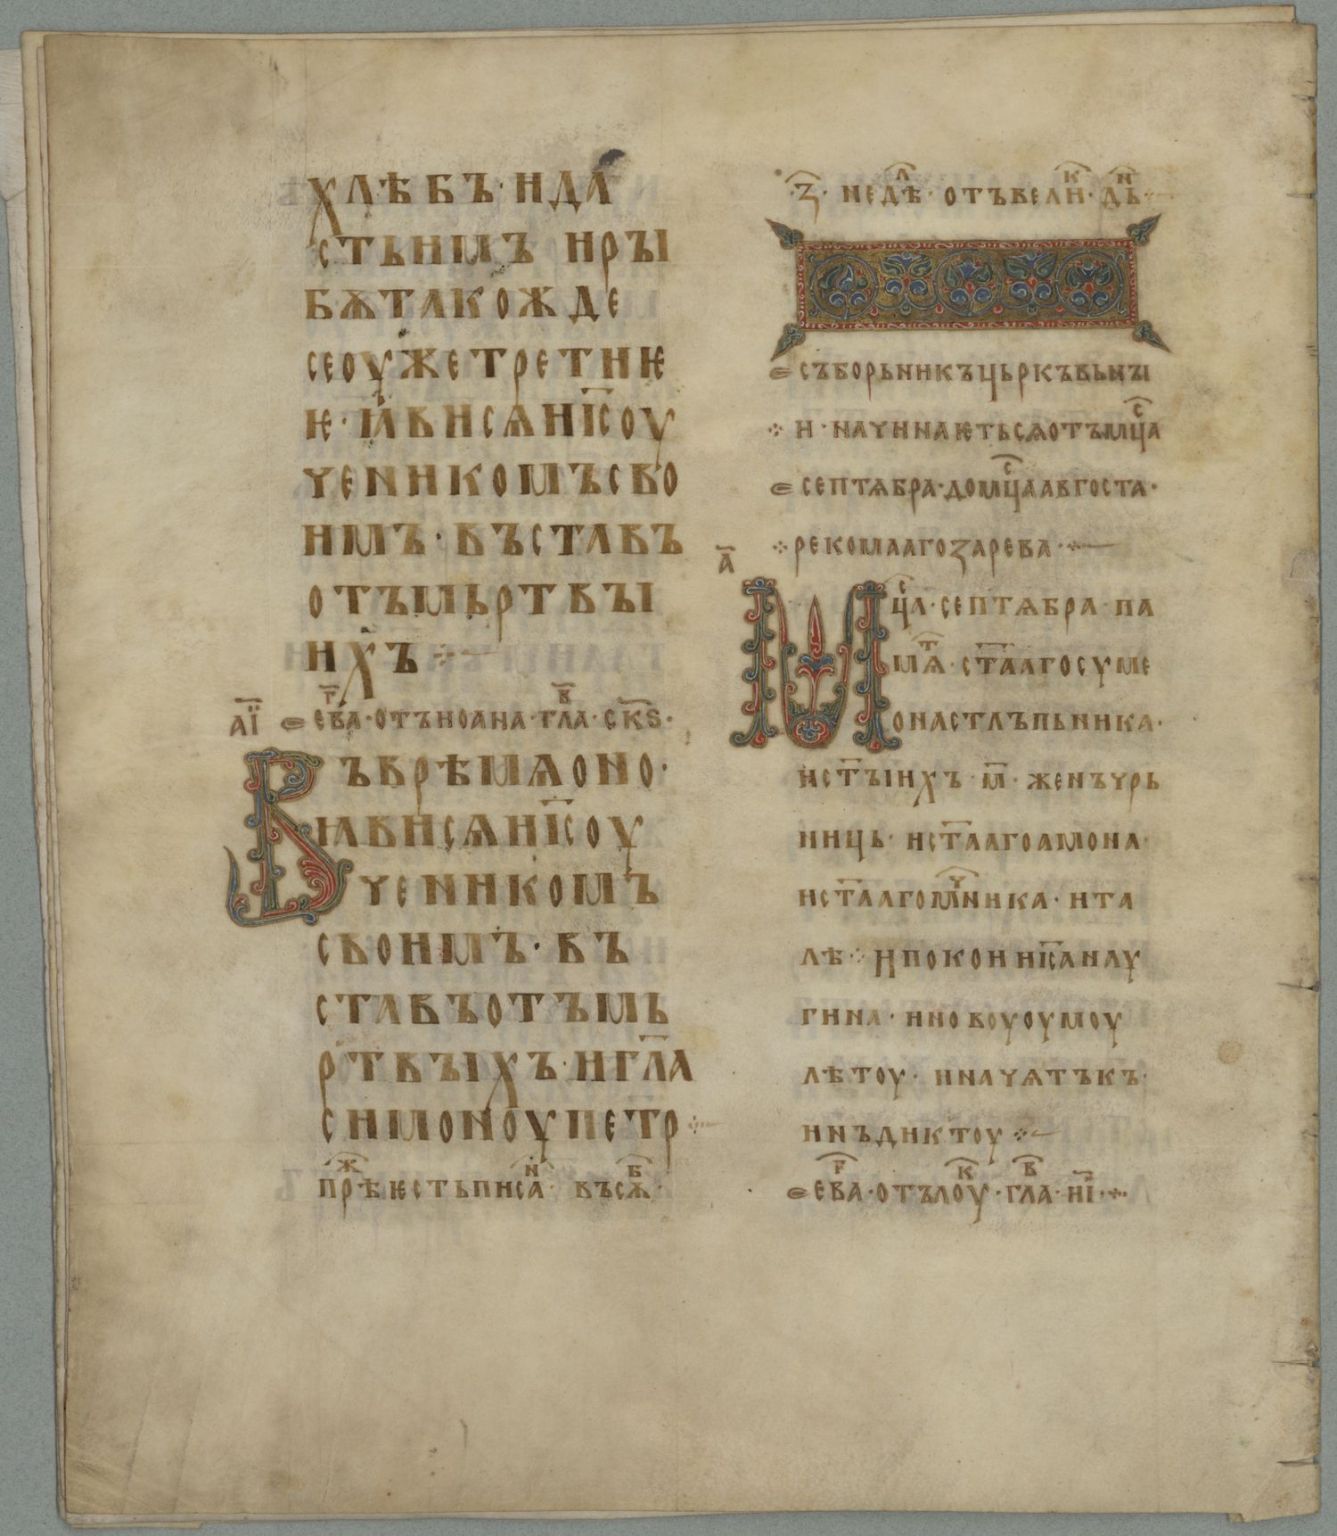 хлѣбъ · и да
сть имъ и ры
бѫ такожде
се оуже третиѥ
ѥ · ꙗви сѧ и҃с оу
ченикомъ сво
имъ · въставъ
отъ мьртвы
ихъ
а҃і еваⷢ · отъ иоана · глаⷡ · ск҃ѕ ·
Въ врѣмѧ оно ·
ꙗви сѧ и҃с оу
ченикомъ
своимъ · въ
ставъ отъ мь
ртвыхъ · и г҃ла
симоноу петр
прѣⷤ ѥсть писаⷩ · въ сѫⷠ ·
·з҃· недⷧѣ · отъ велиⷦ · дⷩь
съборьникъ цьркъвьны
и · начинаѥть сѧ отъ мцⷭа
септѧбра · до мцⷭа авгоста ·
рекомааго зарева ·
а҃
Мцⷭа · септѧбра · па
мѧⷮ · ст҃ааго сумe
она стлъпьника ·
и ст҃ыихъ · м҃ · женъ чрь
ниць · и ст҃ааго амона ·
и ст҃ааго мⷱника · ита
лѣ · и покои и҃са наѵ
гина · и новоуоумоу
лѣтоу · и начѧтъкъ ·
инъдиктоу
еваⷢ · отъ лоуⷦ · глаⷡ · н҃і ·